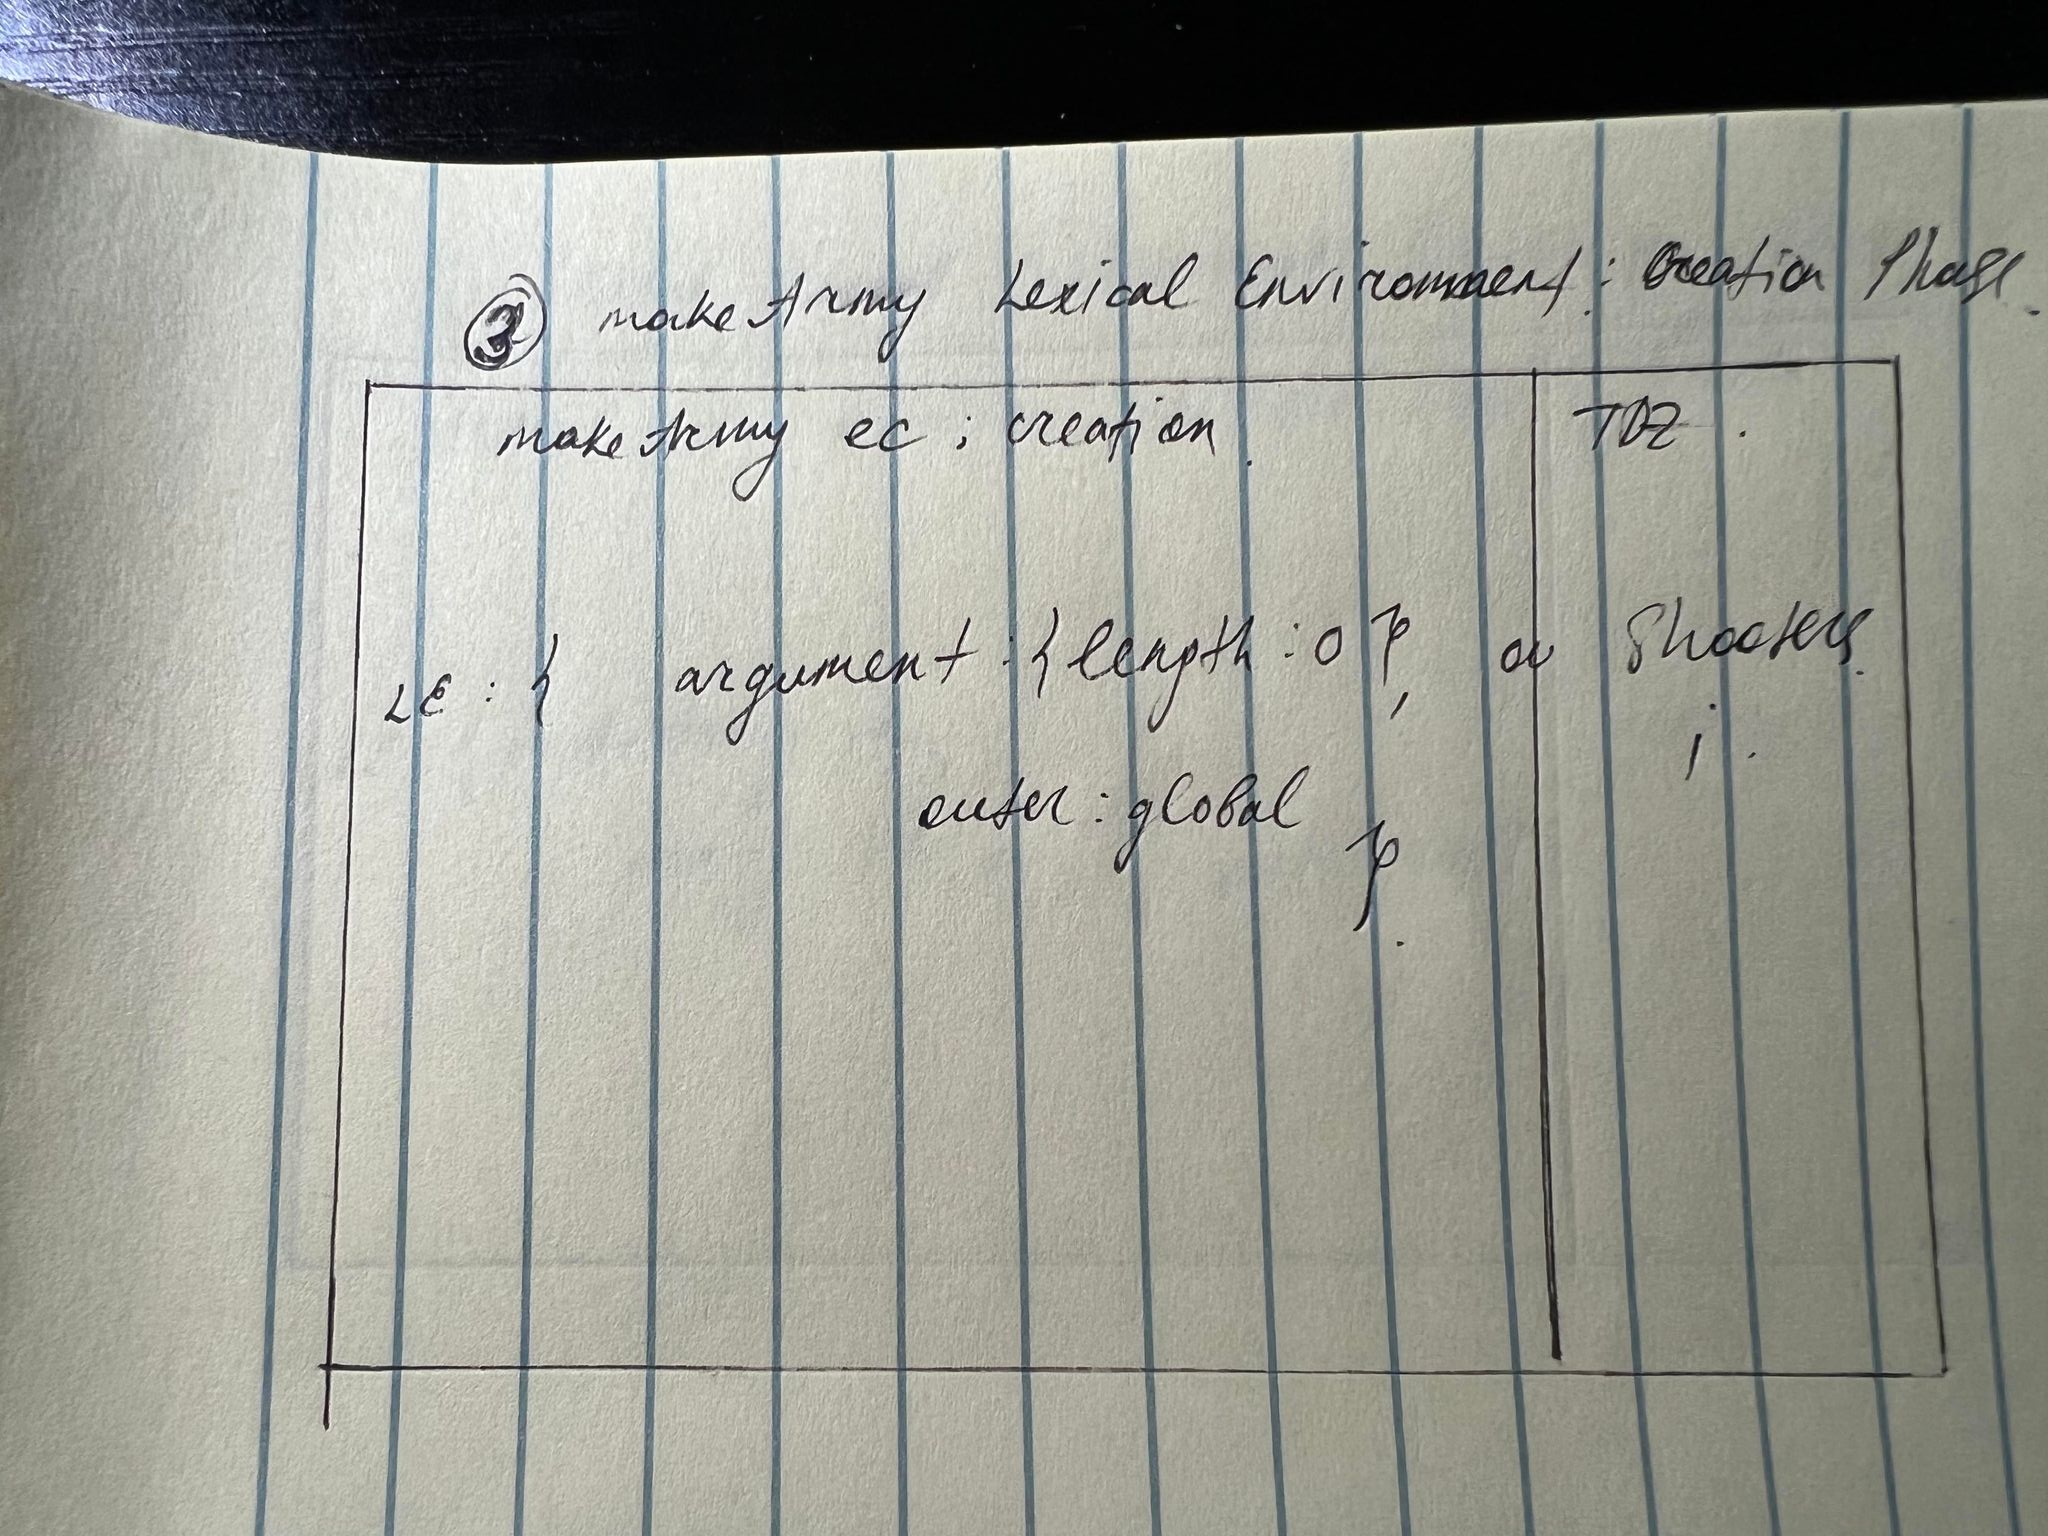 3 makeArmy Lexical Environment: Creation Phase.
makeArmy ec ; creation.
TDZ.
LE : { argument : { length : 0 },
outer : global
}.
Shooters.
i.